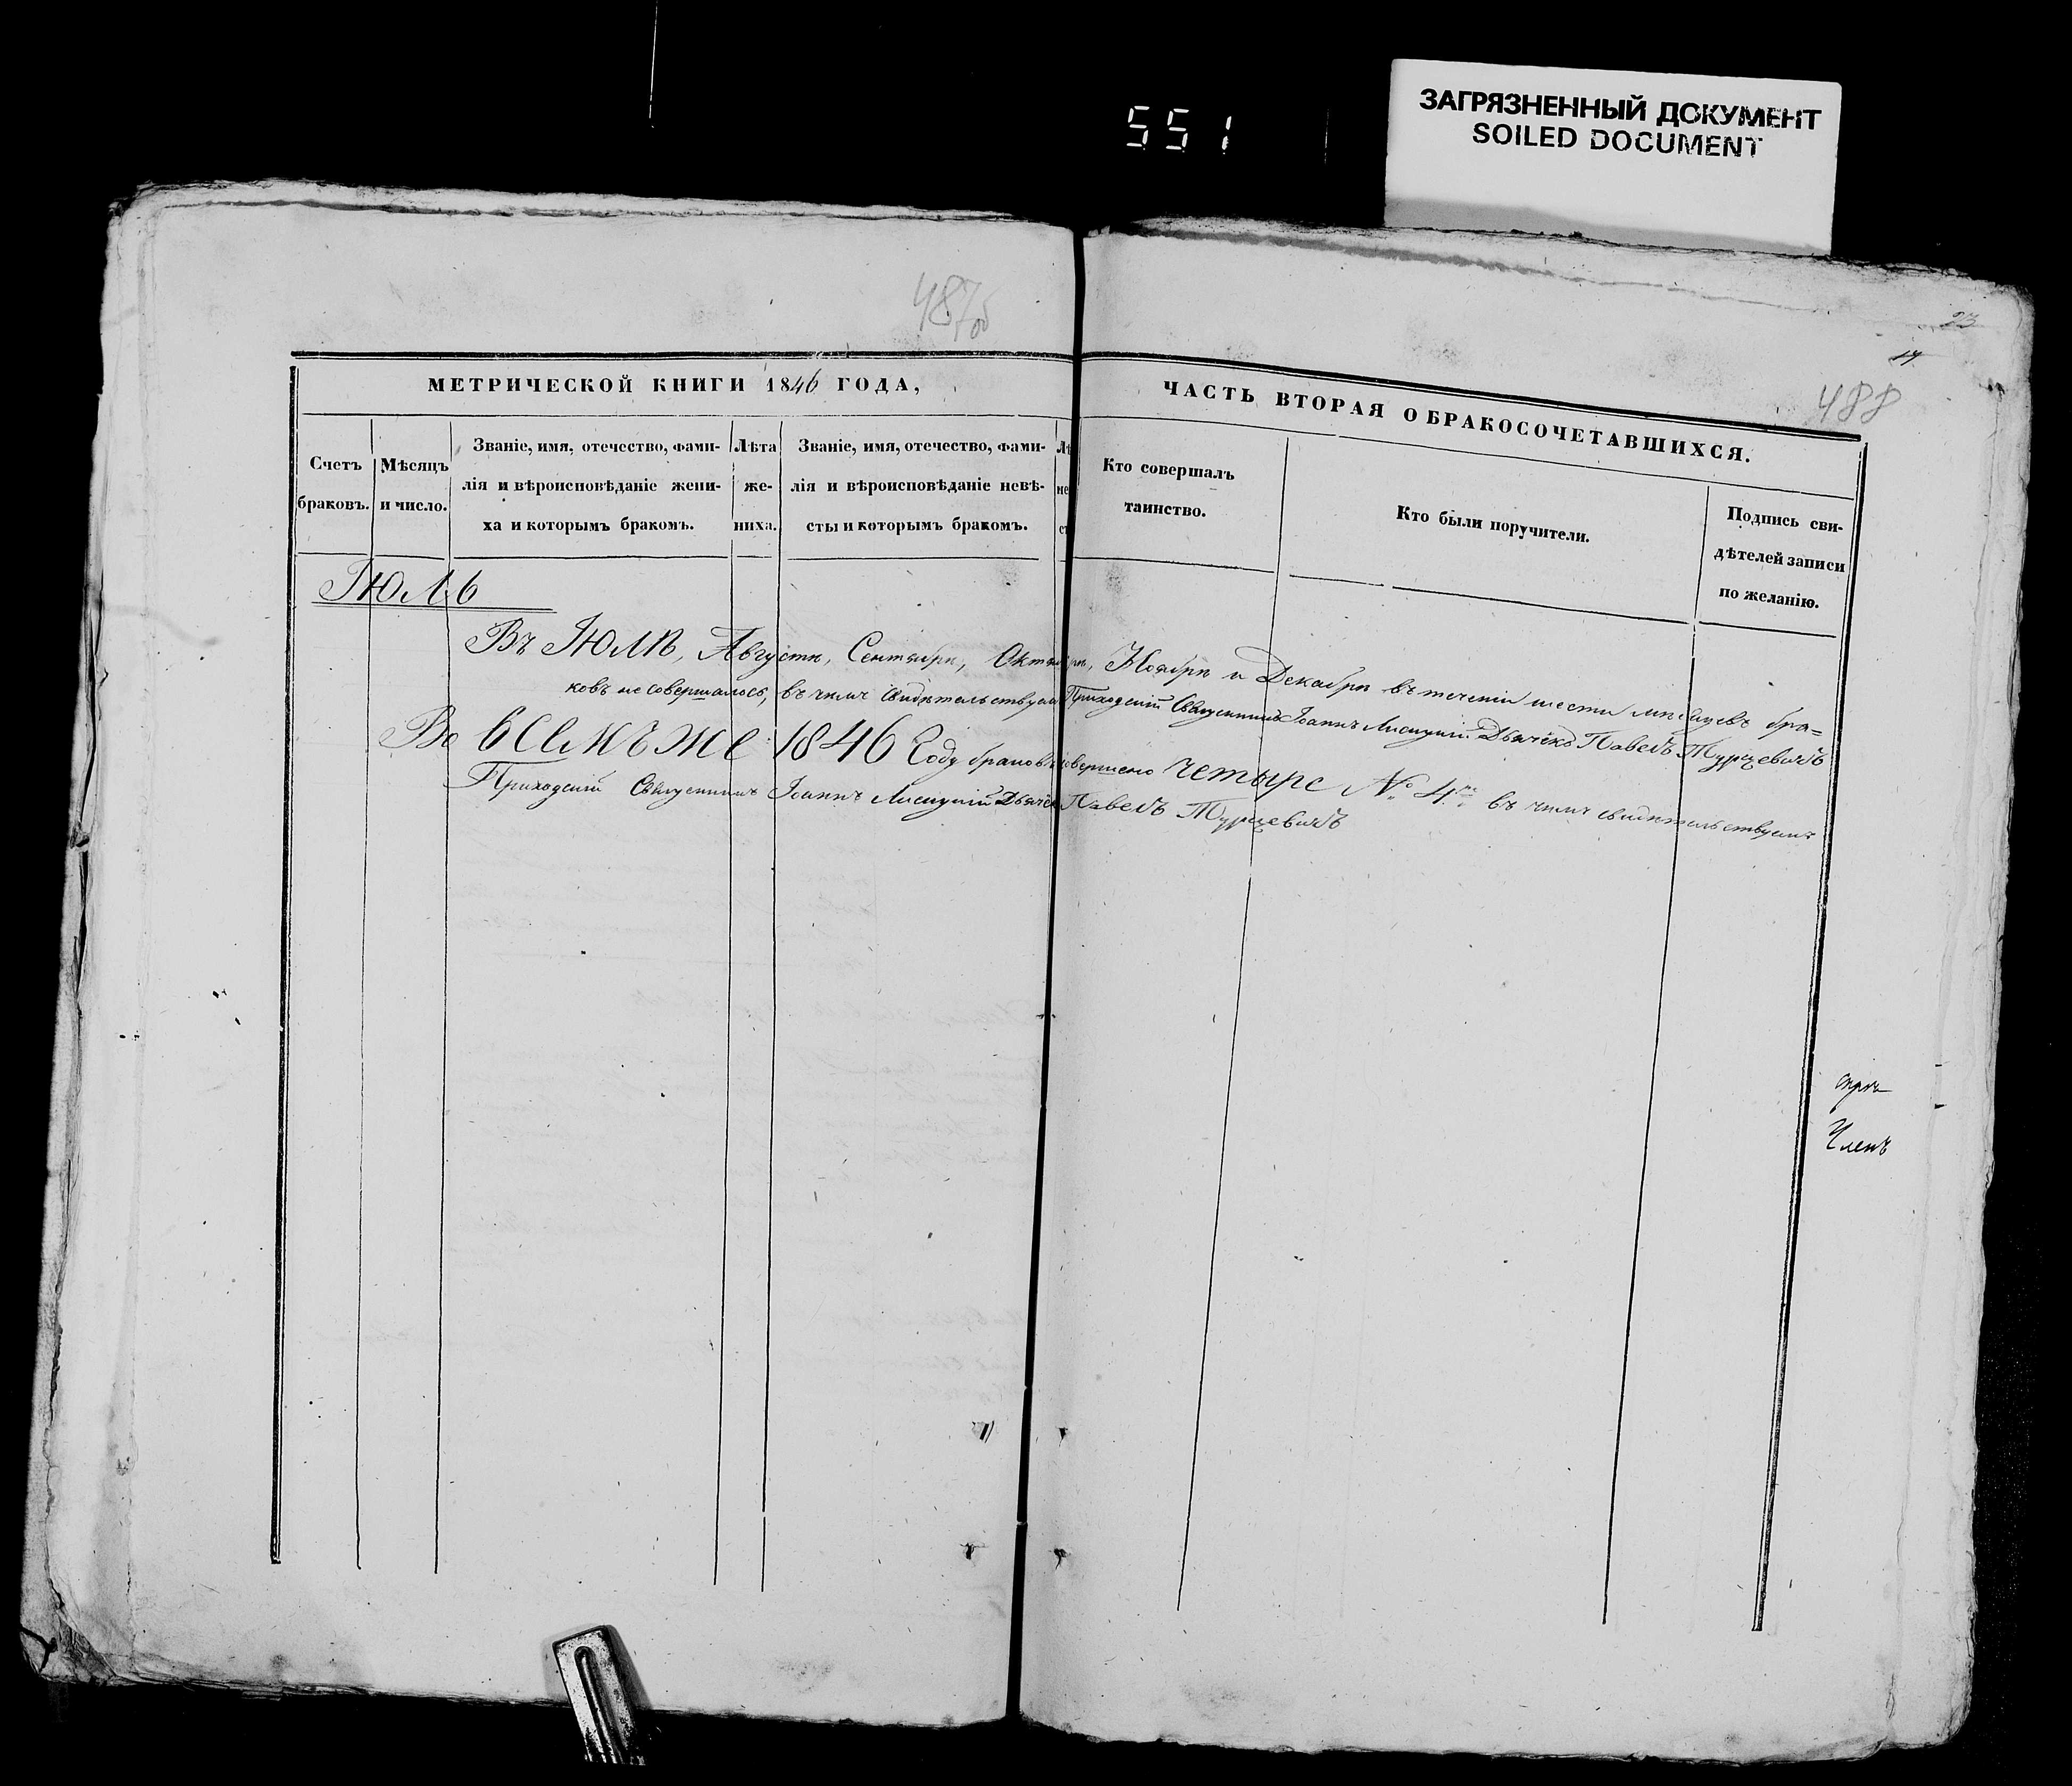 ЗАГРЯЗНЕННЫЙ ДОКУМЕНТ
SOILED DOCUMENT
551
487об
23
17
488
МЕТРИЧЕСКОЙ КНИГИ 1846 ГОДА,
ЧАСТЬ ВТОРАЯ О БРАКОСОЧЕТАВШИХСЯ.
Счетъ
браковъ.
Мѣсяцъ
и число.
Званіе, имя, отечество, фами-
лія и вѣроисповѣданіе жени-
ха и которымъ бракомъ.
Лѣта
же-
ниха.
Званіе, имя, отечество, фами-
лія и вѣроисповѣданіе невѣ-
сты и которымъ бракомъ.
Лѣ
не
ст
Кто совершалъ
таинство.
Кто были поручители.
Подпись сви-
дѣтелей записи
по желанію.
Іюль
Въ Іюлѣ, Августѣ, Сентябрѣ, Октябрѣ, Ноябрѣ и Декабрѣ въ теченіи шести мѣсяцевъ бра=
ковъ не совершалось, въ чемъ свидѣтельствуемъ Приходскій Священникъ Іоаннъ Лисицкій Дьячекъ Павелъ Турцевичъ
Во всемъ же 1846 Году браковъ совершено четыре № 4. въ чемъ свидѣтельствуемъ
Приходскій Священникъ Іоаннъ Лисицкій Дьячекъ Павелъ Турцевичъ
Членъ